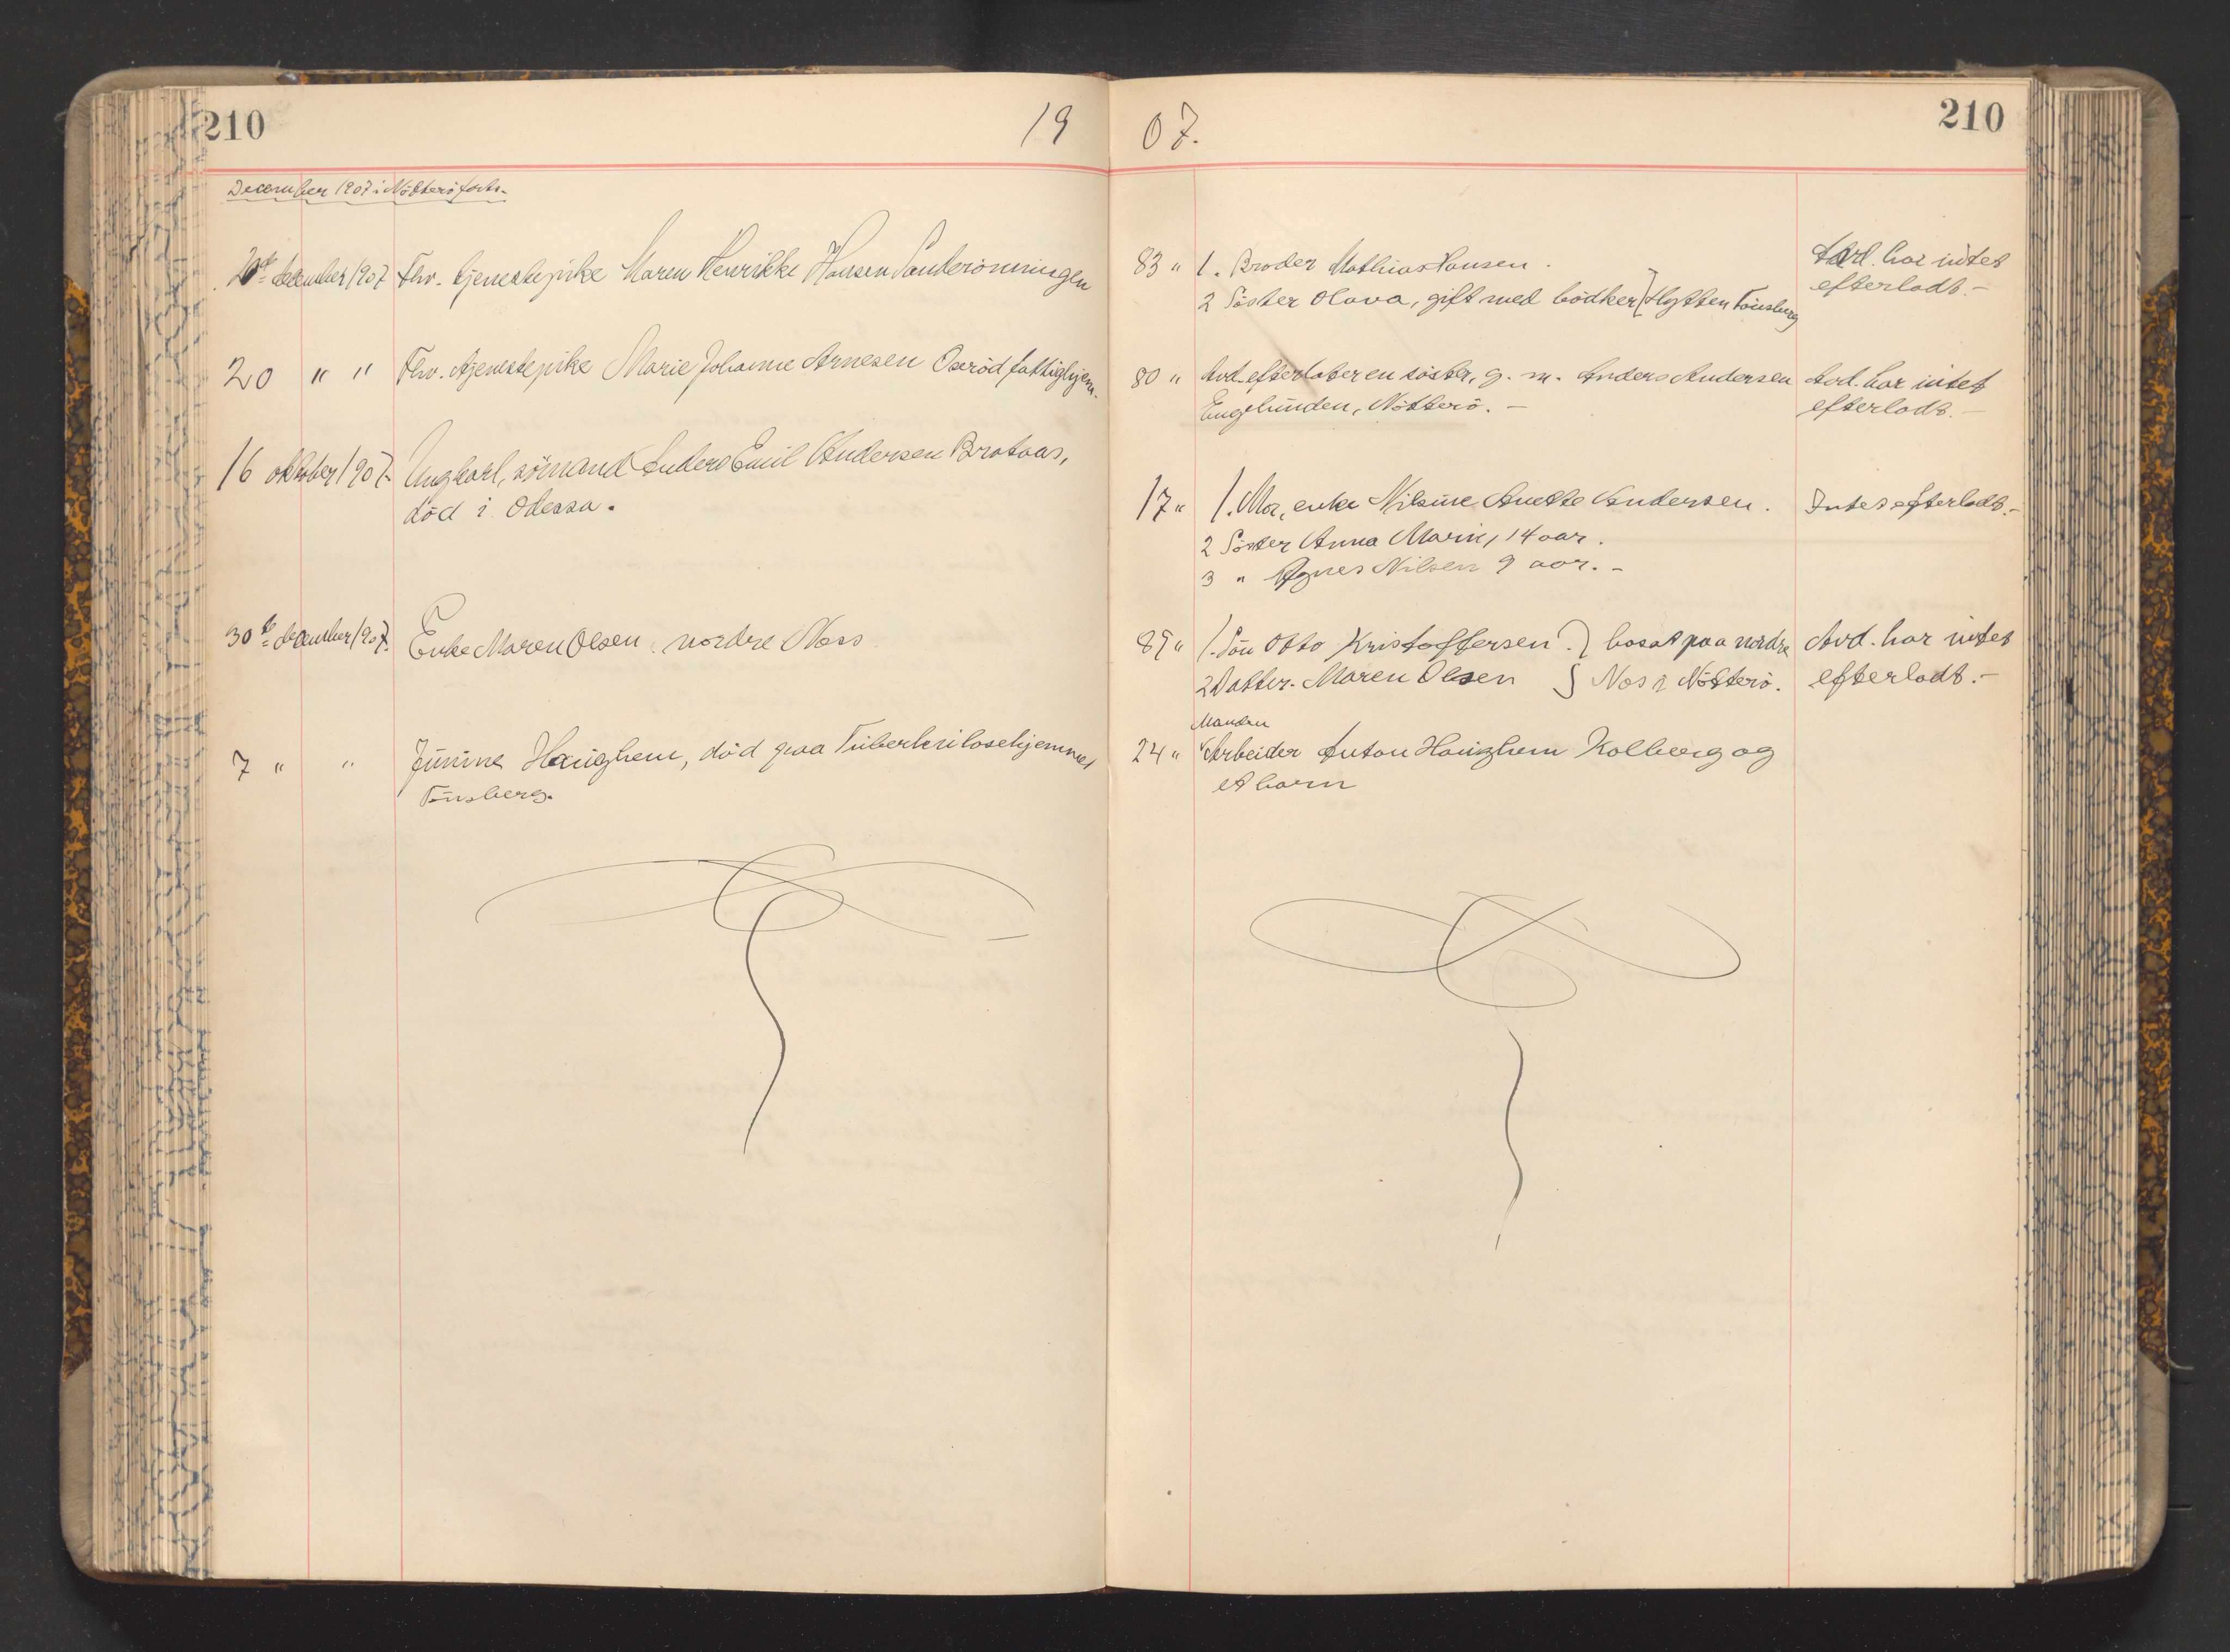 210
19
07.
210
December 1907 i Nötterö forts.
20de december 1907 Fhv. tjenestepike Maren Henrikke Hansen Sanderönningen
83 " 1. Broder Mathias Hansen.
2 Söster Olava, gift med bödker Hytten Tönsberg
Avd. har intet
efterladt.-
20 " " Fhv. tjenestepike Marie Johanne Arnesen Oseröd fattighjem.
80 " Avd. efterlater en söster, g. m. Anders Andersen
Engelunden, Nötterö. -
Avd. har intet
efterladt. -
16 oktober 1907. Ungkarl, sömand Anders Emil Andersen Brataas,
död i Odessa.
17 " 1. Mor, enke Nilsine Anette Andersen.
2 Söster Anna Marie, 14 aar.
3 " Agnes Nilsen 9 aar. -
Intet efterladt.-
30te december 1907. Enke Maren Olsen, nordre Næss
1. Sön Otto Kristoffersen. } bosat paa nordre
2 Datter. Maren Olsen } Nes i Nötterö.
Avd. har intet
efterladt.-
7 " " Junine Haughem, död paa Tuberkulosehjemmet
Tönsberg.
Manden
24 " Arbeider Anton Haughem Kolberg og
et barn